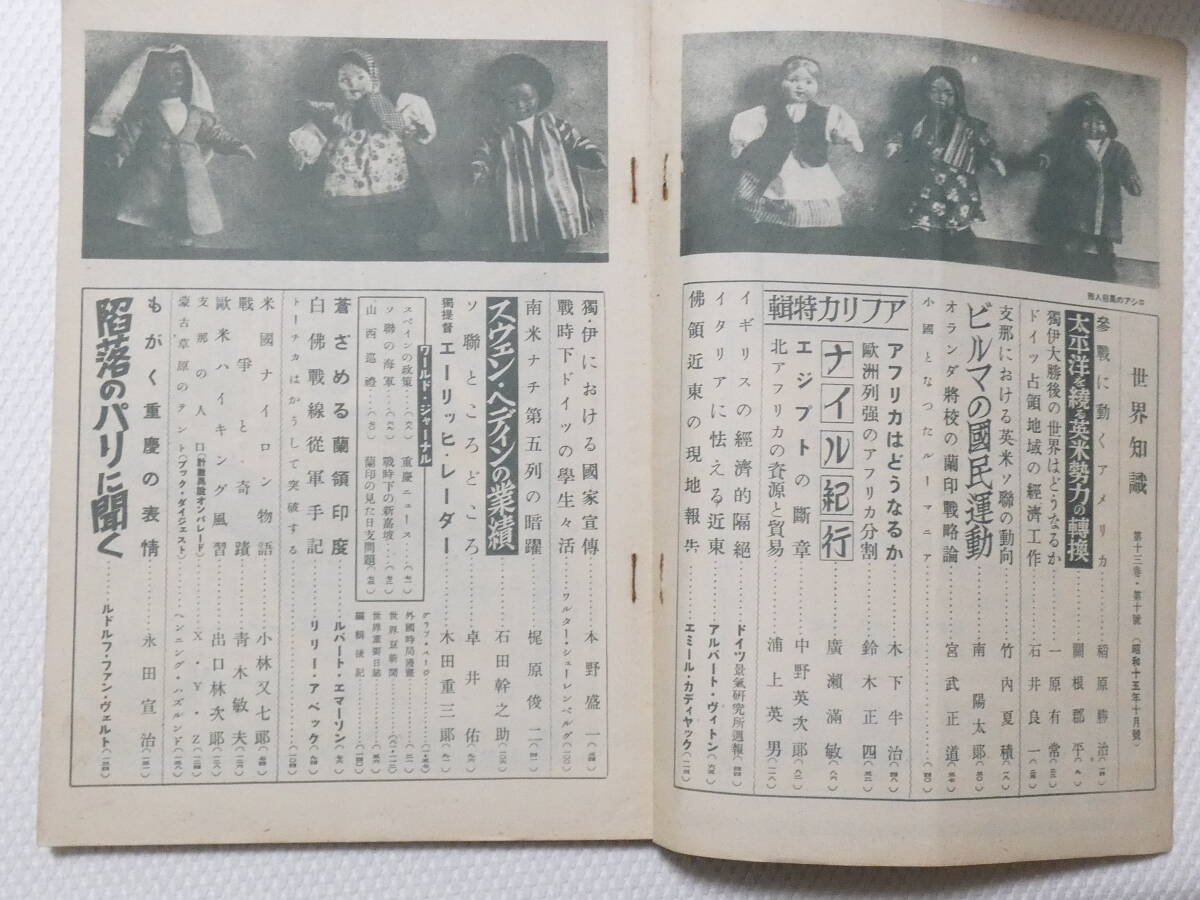 ロシアの風俗人形
世界知識 第十三卷・第十號 (昭和十五年十月號)
參戰に動くアメリカ………稻原勝治
太平洋を繞る英米勢力の轉換………關根郡平
獨伊大勝後の世界はどうなるか………一原有常
ドイツ占領地域の經濟工作………石井良一
支那における英米ソ聯の動向………竹內夏積
ビルマの國民運動………南陽太郞
オランダ將校の蘭印戰略論………宮武正道
小國となつたルーマニア
アフリカ特輯
アフリカはどうなるか………木下半治
歐洲列强のアフリカ分割………鈴木正四
ナイル紀行………廣瀨滿敏
エジプトの斷章………中野英次郞
北アフリカの資源と貿易………浦上英男
イギリスの經濟的隔絕………ドイツ景氣硏究所週報
イタリアに怯える近東………アルバート・ヴィトン
佛領近東の現地報告………エミール・カディヤック
獨・伊における國家宣傳………本野盛一
戰時下ドイツの學生々活………ワルター・シューレンベルグ
南米ナチ第五列の暗躍………梶原俊二
スウェン・ヘディンの業績………石田幹之助
ソ聯ところどころ………卓井佑
獨提督エーリッヒ・レーダー………木田重三郞
ワールド・ジャーナル
スペインの政策
重慶ニュース
ソ聯の海軍
戰時下の新嘉坡
山西巡禮
蘭印の見た日支問題
外國時局漫畫
世界豆新聞
世界重要日誌
編輯後記
蒼ざめる蘭領印度………ルパート・エマーリン
白佛戰線從軍手記………リリー・アベック
トーチカはかうして突破する
米國ナイロン物語………小林又七郞
戰爭と奇蹟………靑木敏夫
歐米ハイキング風習………出口林次郞
支那の人口(計數異說オンパレード)………X・Y・Z
蒙古草原のテント(ブック・ダイジェスト)………ヘンニング・ハズルンド
もがく重慶の表情………永田宣治
陷落のパリに聞く………ルドルフ・ファン・ヴェルト